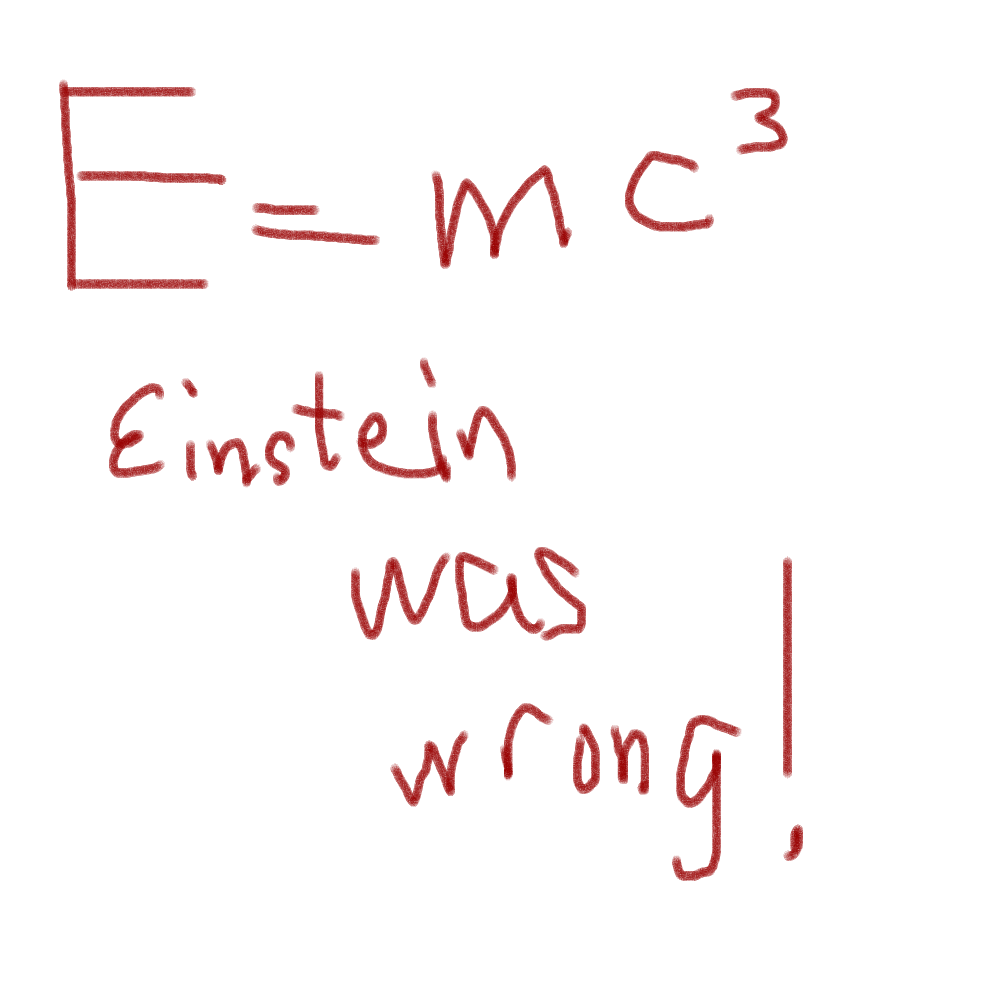 E = mc³
Einstein
was
wrong!